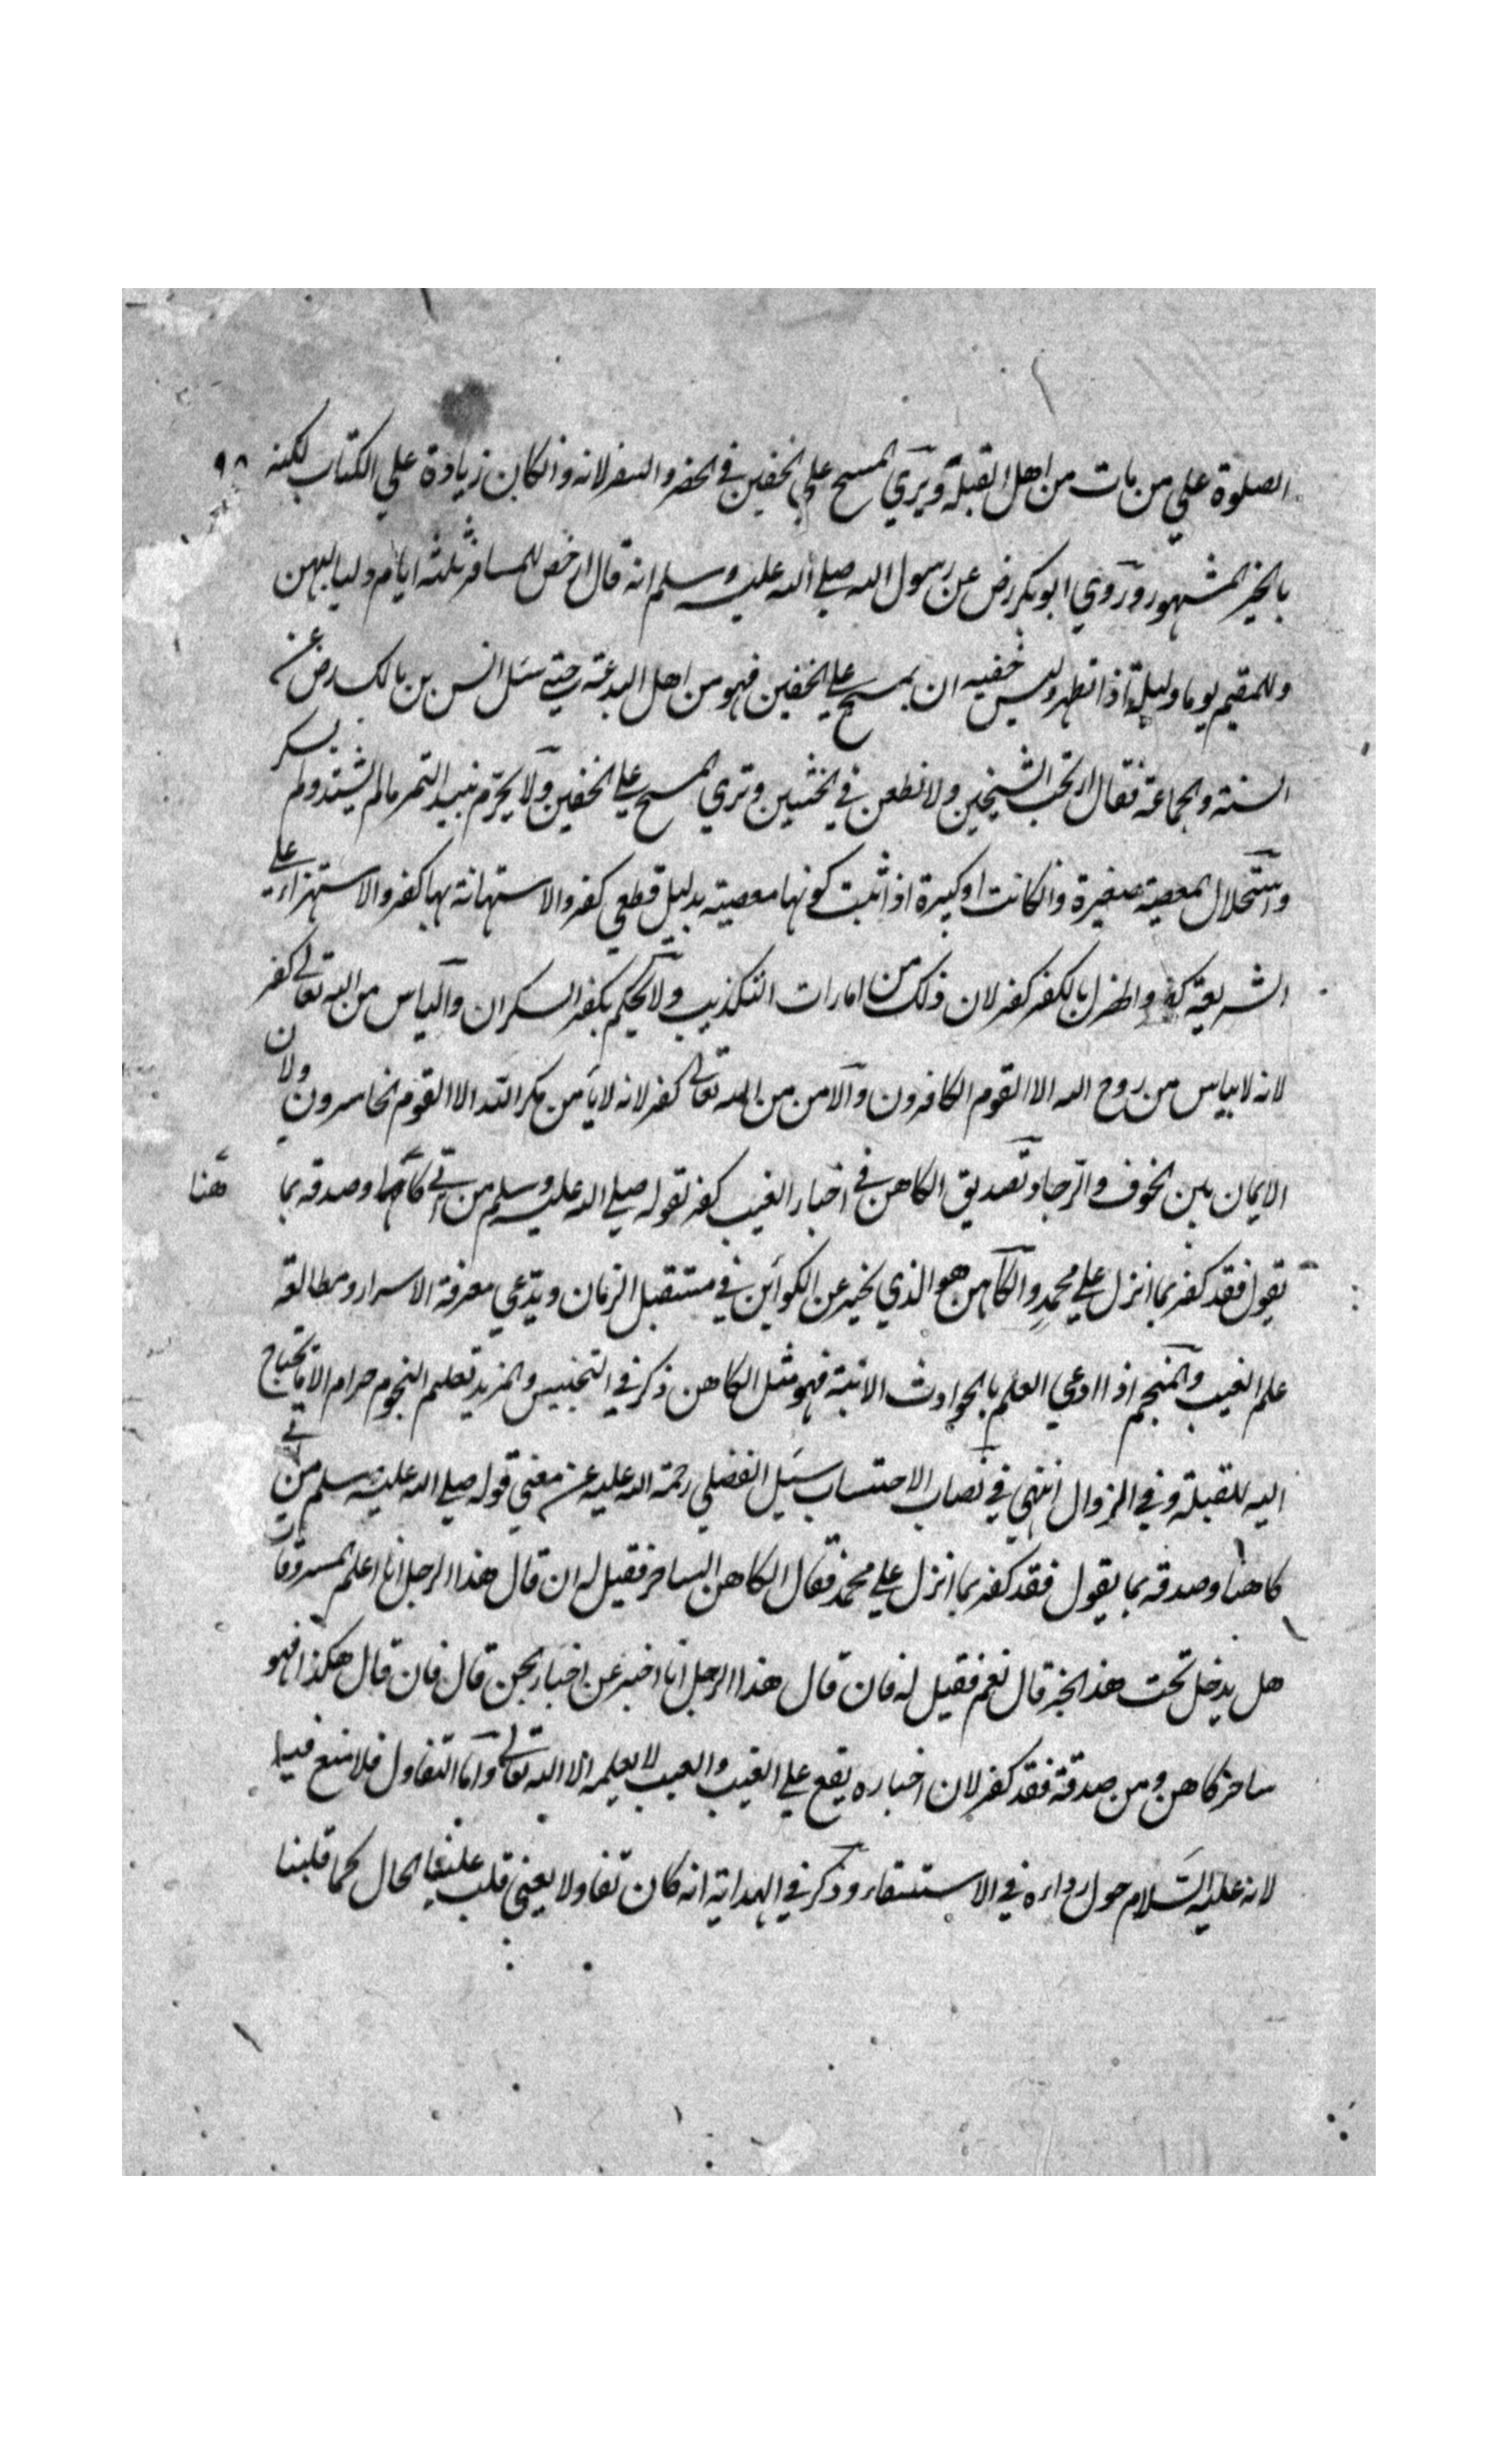 الصلوة علي من مات من اهل القبلة ويري المسح علي الخفين في الحضر والسفر لانه وانكان زيادة علي الكتاب لكنه
بالخبر المشهور وروي ابو بكر رض عن رسول الله صلي الله عليه وسلم انه قال ارخص للمسافر ثلثة ايام ولياليهن
وللمقيم يوما وليلة اذا تطهر ولبس خفيه ان يمسح علي الخفين فهو من اهل البدعة حتي سئل انس بن مالك رض عن
السنة والجماعة فقال ان تحب الشيخين ولا تطعن في الختنين وتري المسح علي الخفين ولا يحرم نبيذ التمر مالم يشتد ولم يسكر
واستحلال المعصية صغيرة وانكانت او كبيرة اذا ثبت كونها معصيته بدليل قطعي كفر والاستهانة بها كفر والاستهزاء علي
الشريعة كفر والهزل بالكفر كفر لان ذلك من امارات التكذيب ولا يحكم بكفر السكران والياس من الله تعالي كفر
لانه لا يياس من روح الله الا القوم الكافرون والامن من الله تعالي كفر لانه لا يأمن مكر الله الا القوم الخاسرون ولان
الايمان بين الخوف والرجا وتصديق الكاهن في اخبار الغيب كفر لقوله صلي الله عليه وسلم من اتي كاهنا وصدقه بما
هنا
يقول فقد كفر بما انزل علي محمد والكاهن هو الذي يخبر عن الكوائن في مستقبل الزمان ويدعي معرفة الاسرار ومطالعة
علم الغيب والمنجم اذا ادعي العلم بالحوادث الاتية فهو مثل الكاهن ذكر في التجنيس والمزيد تعلم النجوم حرام الا ما يحتاج
اليه للقبلة وفي الزوال انتهي في نصاب الاحتساب سئل الفضلي رحمة الله عليه عن معني قوله صلي الله عليه وسلم من اتي
كاهنا وصدقه بما يقول فقد كفر بما انزل علي محمد فقال الكاهن الساحر فقيل له ان قال هذا الرجل انا اعلم المسروقات
هل يدخل تحت هذا الخبر قال نعم فقيل له فان قال هذا الرجل انا اخبر عن اخبار الجن قال فان قال هكذا فهو
ساحر كاهن ومن صدقه فقد كفر لان اخباره يقع علي الغيب والغيب لا يعلمه الا الله تعالي واما التفاول فلا منع فيها
لانه عليه السلام حول رداءه في الاستسقاء وذكر في الهداية انه كان تفاولا يعني قلب علينا الحال كما قلبنا